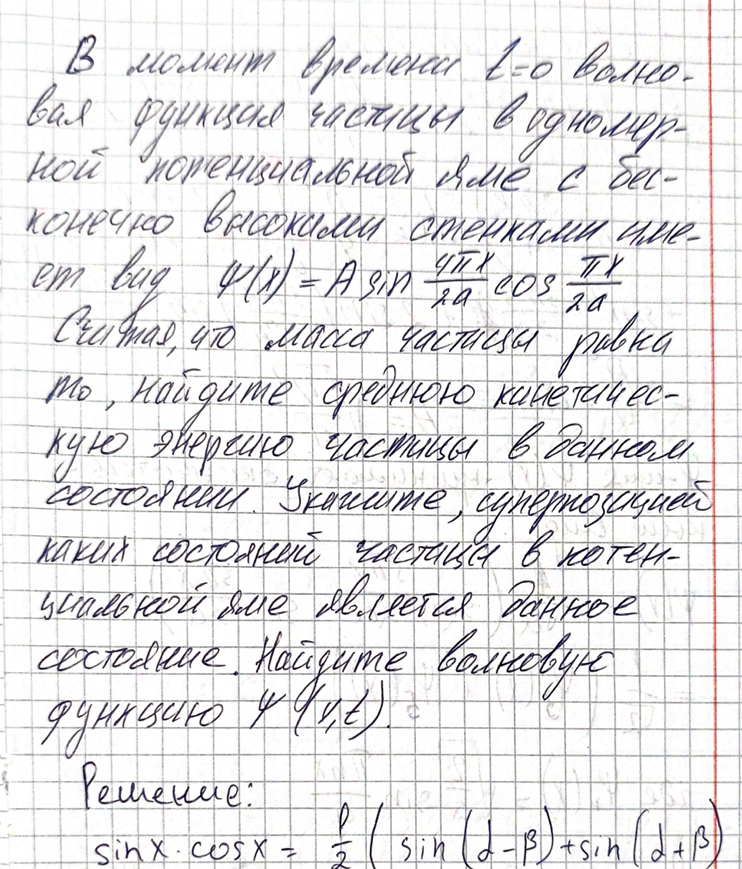 В момент времени t=0 волно-
вая функция частицы в одномер-
ной потенциальной яме с бес-
конечно высокими стенками име-
ет вид ψ(x) = A sin 4πx/2a cos πx/2a
Считая, что масса частицы равна
m₀, найдите среднюю кинетичес-
кую энергию частицы в данном
состоянии. Укажите, суперпозицией
каких состояний частицы в потен-
циальной яме является данное
состояние. Найдите волновую
функцию Ψ (x,t).
Решение:
sinx·cosx = 1/2 ( sin (α-β)+sin (α+β)